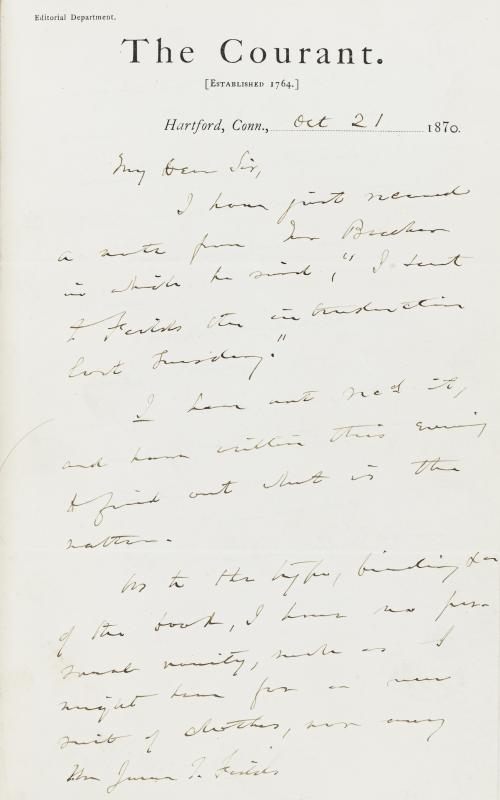 Editorial Department.
The Courant.
[Established 1764.]
Hartford, Conn., Oct 21 1870.
My Dear Sir,
I have just received
a note from Mr Beecher
in which he said, "I sent
to Fields the introduction
last Tuesday."
I have not recd it,
and have written this evening
to find out what is the
matter.
As to the type, binding &c
of the book, I have no per-
sonal vanity, such as I
might have for a new
suit of clothes, nor any
Mr James T. Fields